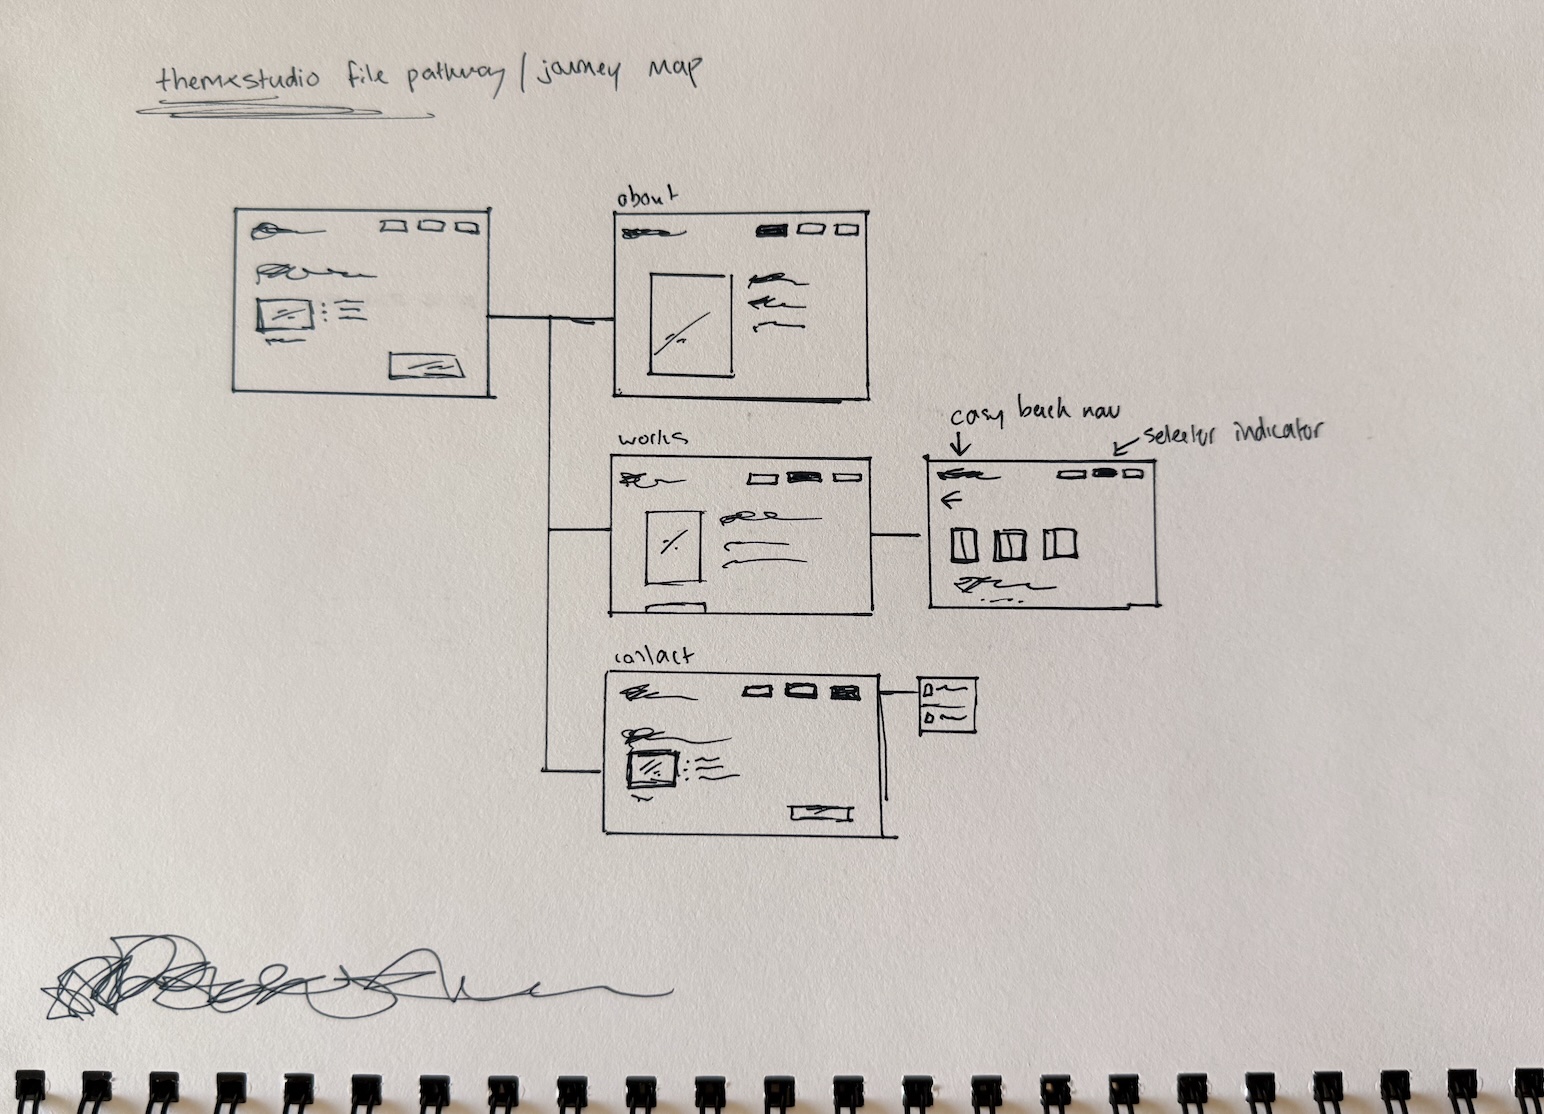 themxstudio file pathway / journey map
about
easy back nav
selector indicator
works
contact